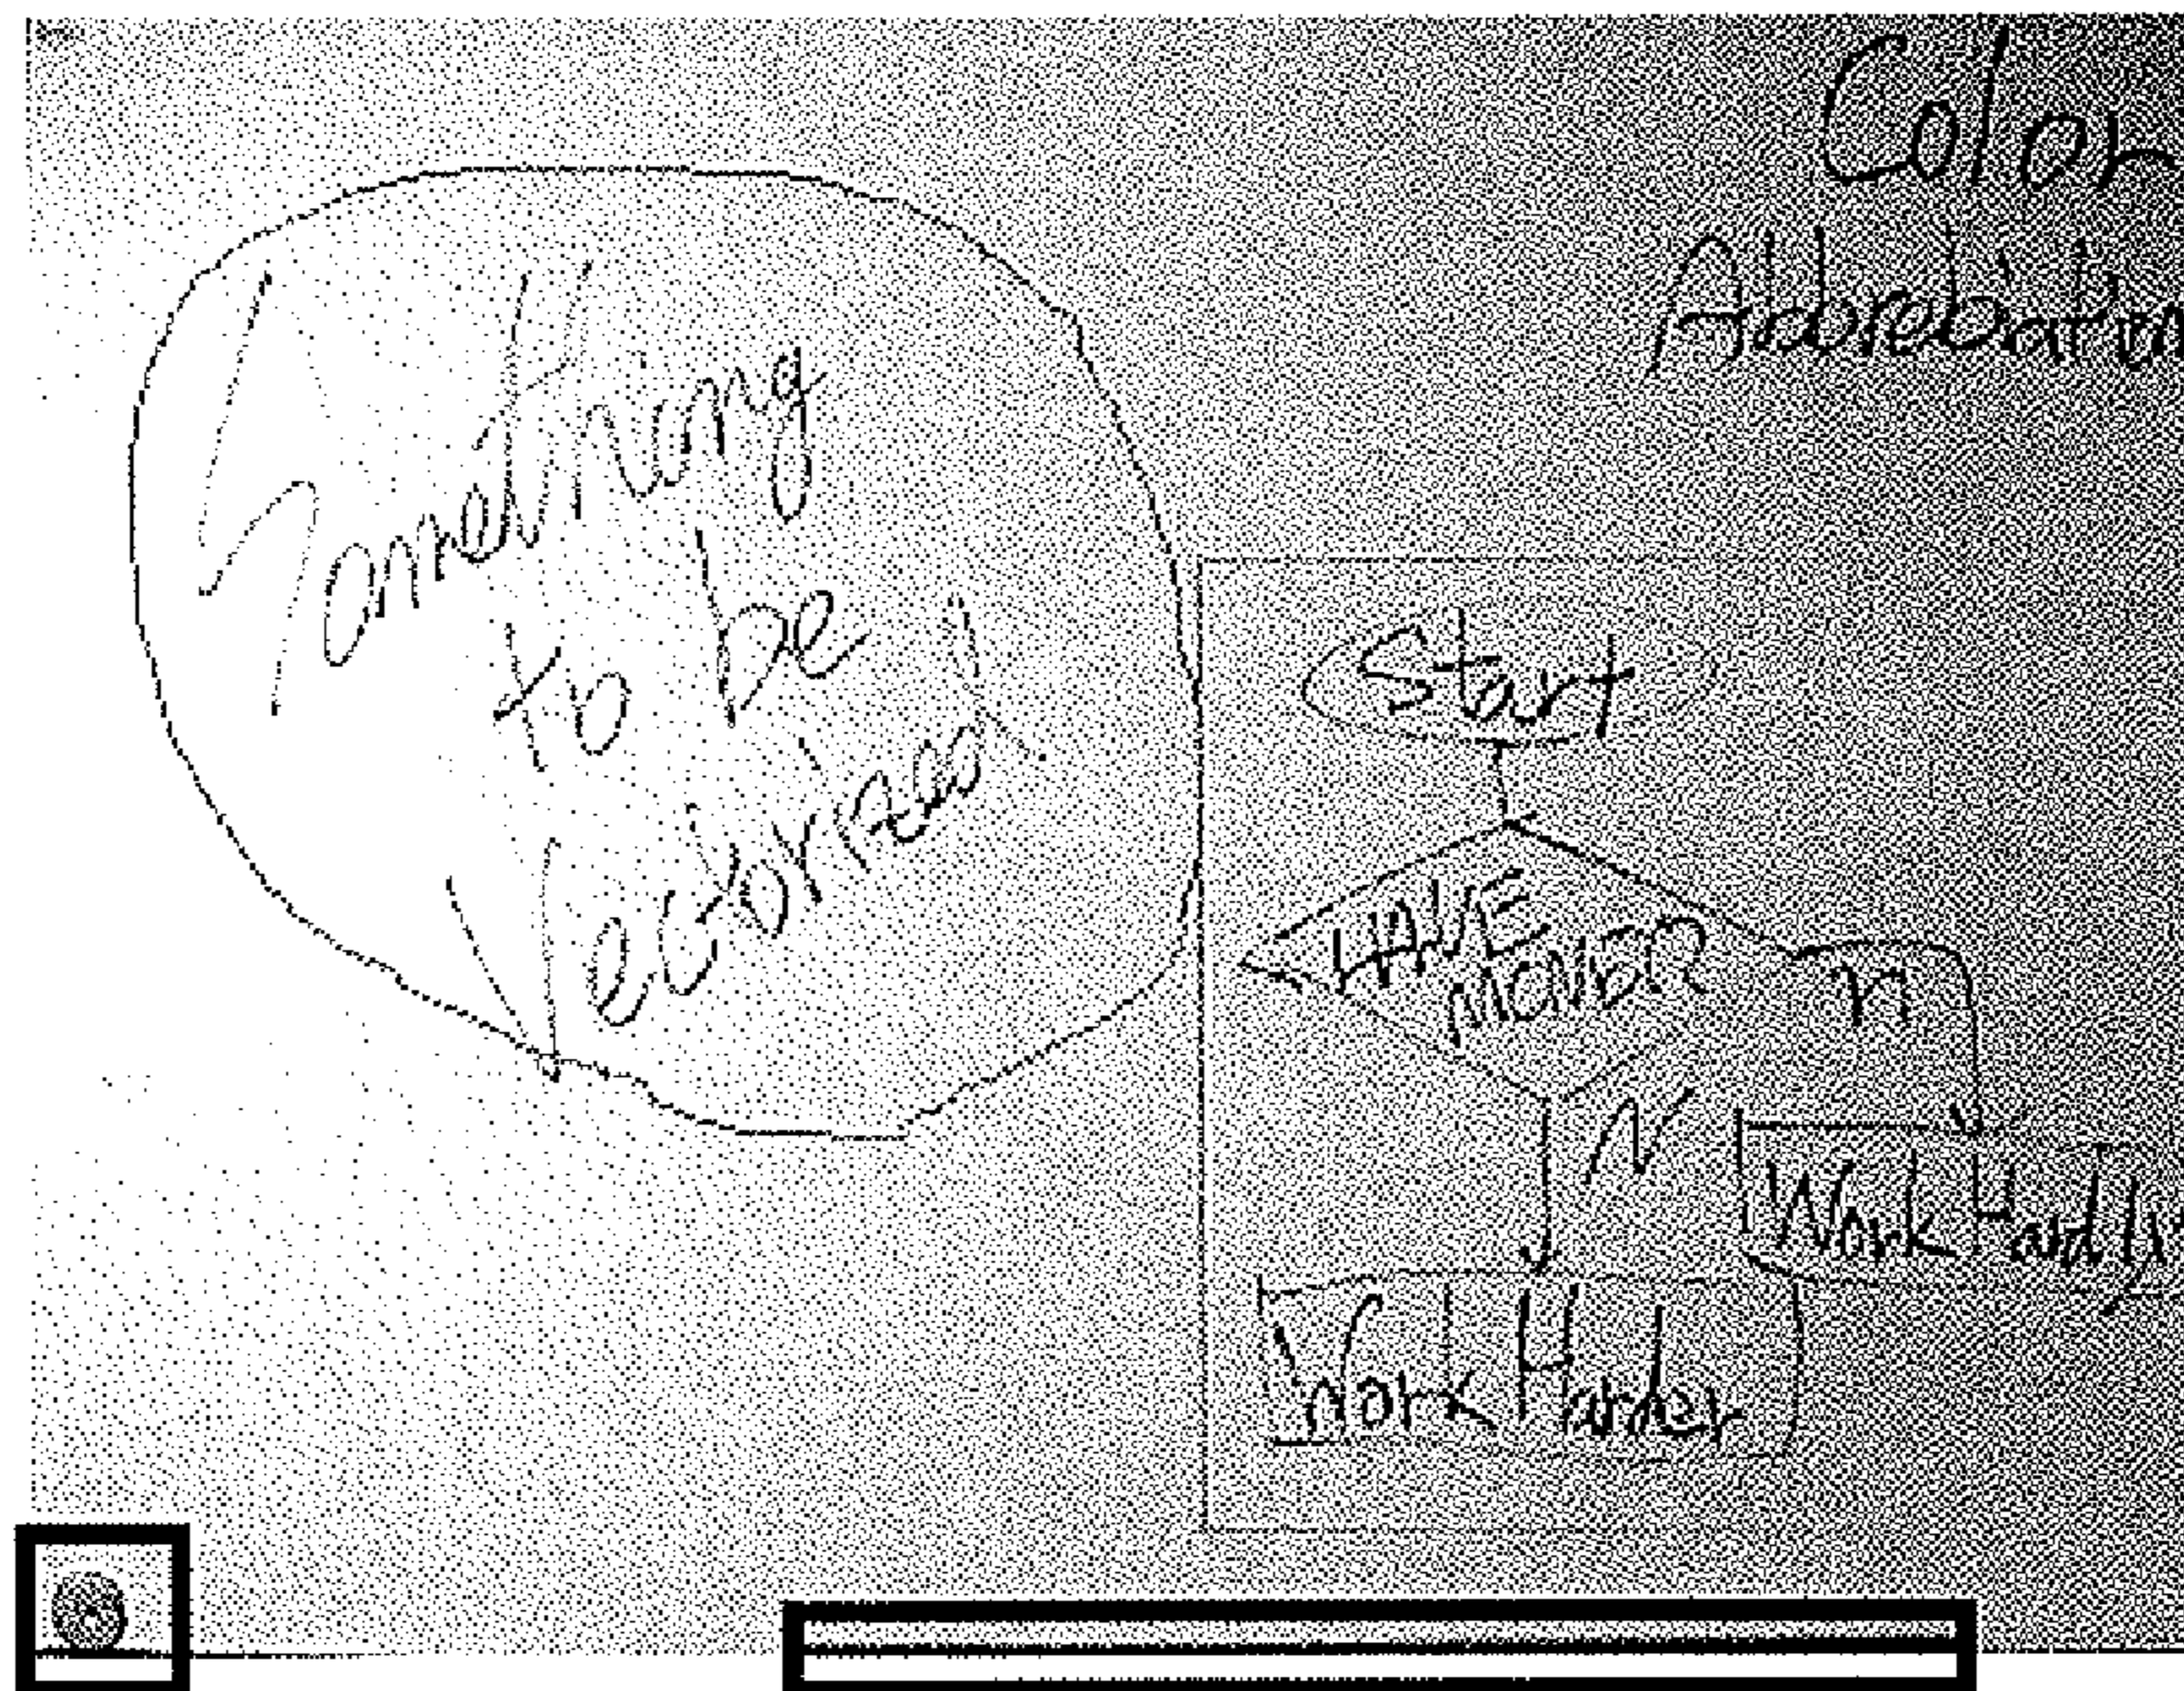 Color
Abbrebiation
Something
to be
Vectorized
Start
HAVE
n
N
Work Hardly
Work Harder